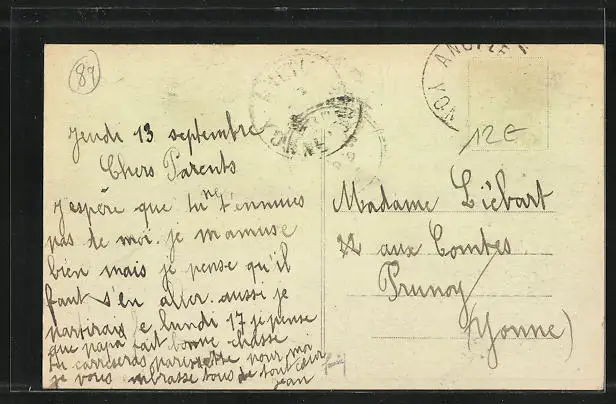 89
Jeudi 13 septembre
Chers Parents
J'espère que tu ne t'ennuies
pas de moi. je m'amuse
bien mais je pense qu'il
faut s'en aller. aussi je
partirais le lundi 17 je pense
que papa fait bonne chasse
tu carreseras pour moi
je vous embrasse tous de tout cœur
jean
NOY ANGILLE
12€
Madame Liébart
aux Comtes
Prunoy
(Yonne)